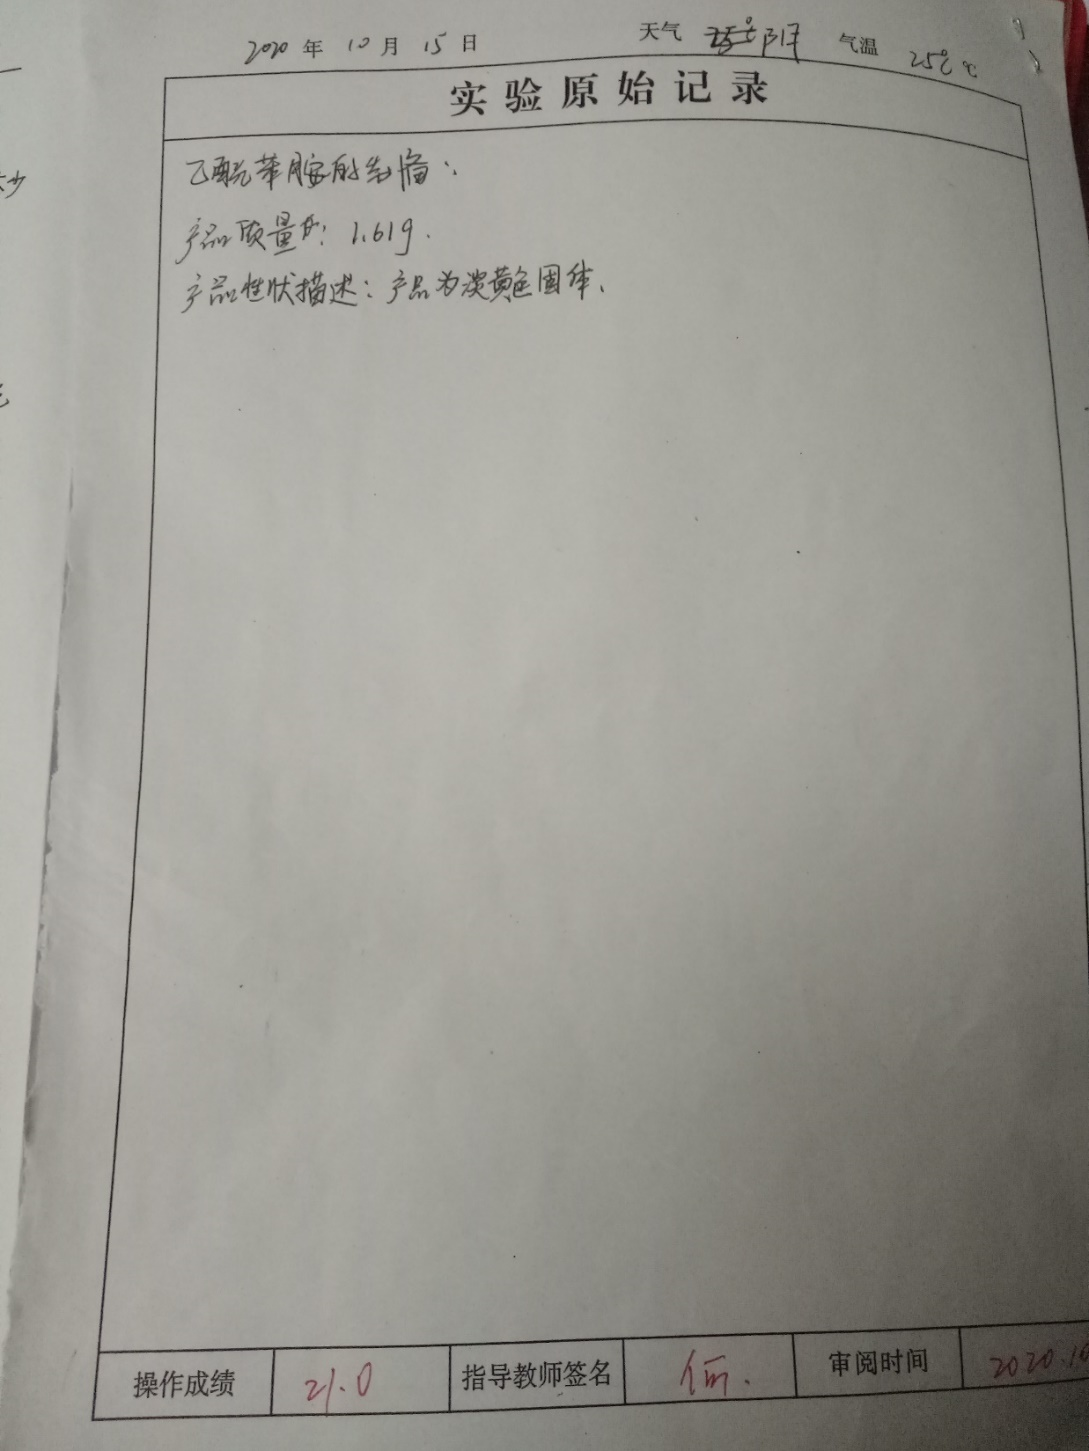 2020 年 10 月 15 日 天气 阴 气温 25℃ ℃
实验原始记录
乙酰苯胺的制备：
产品质量为：1.61g.
产品性状描述：产品为淡黄色固体、
操作成绩 21.0 指导教师签名 审阅时间 2020.10